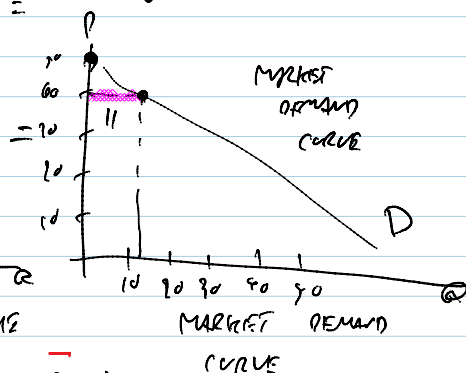 P
60
11
20
10
MARKET
DEMAND
CURVE
D
10 20 30 40 50
Q
Q
MARKET DEMAND
CURVE